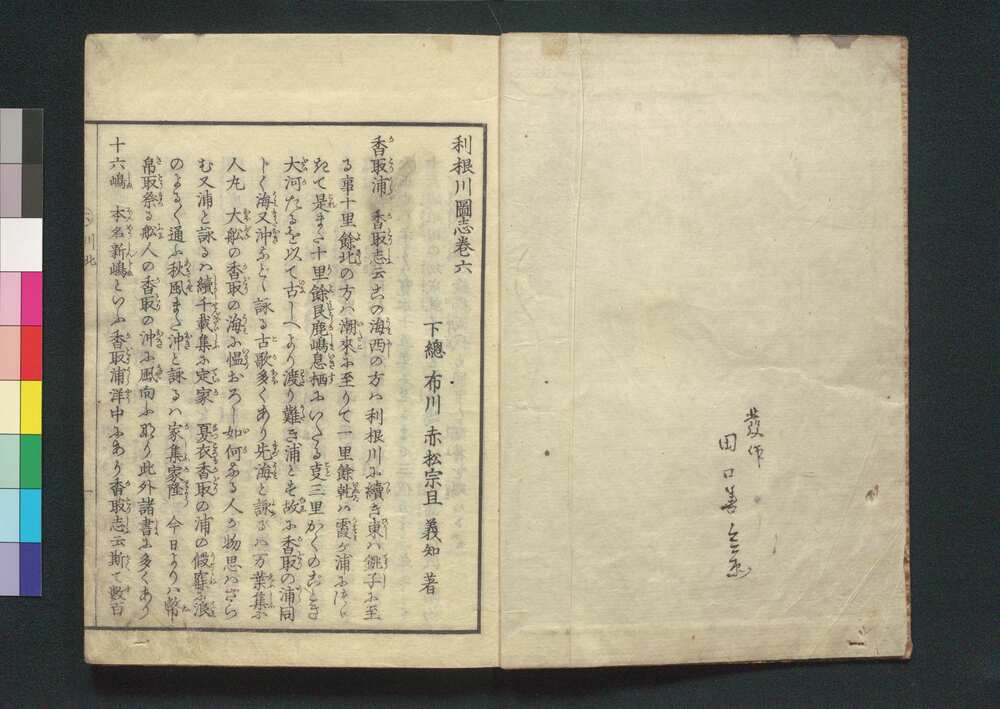 發作
田口善
利根川圖志卷六
下總 布川 赤松宗旦 義知 著
香取浦 香取志云この海西の方ハ利根川に續き東ハ銚子に至
る事十里餘北の方ハ潮來に至りて一里餘乾ハ霞ヶ浦に
て是また十里餘艮鹿嶋息栖にいたる支三里かくのごとき
大河たるを以て古しへより渡り難き浦とす故に香取の浦同
じく海又沖など詠る古歌多くあり先海と詠るハ万葉集に
人丸 大舩の香取の海に慍おろし如何なる人か物思ハざら
む又浦と詠るハ續千載集に定家 夏衣香取の浦の假寐に浪
のよるよる通ふ秋風また沖と詠るハ家集家隆 今日よりハ幣
帛取祭る舩人の香取の沖に風向ふなり此外諸書に多くあり
十六嶋 本名新嶋といふ香取浦洋中にあり香取志云斯て數百
川北
一